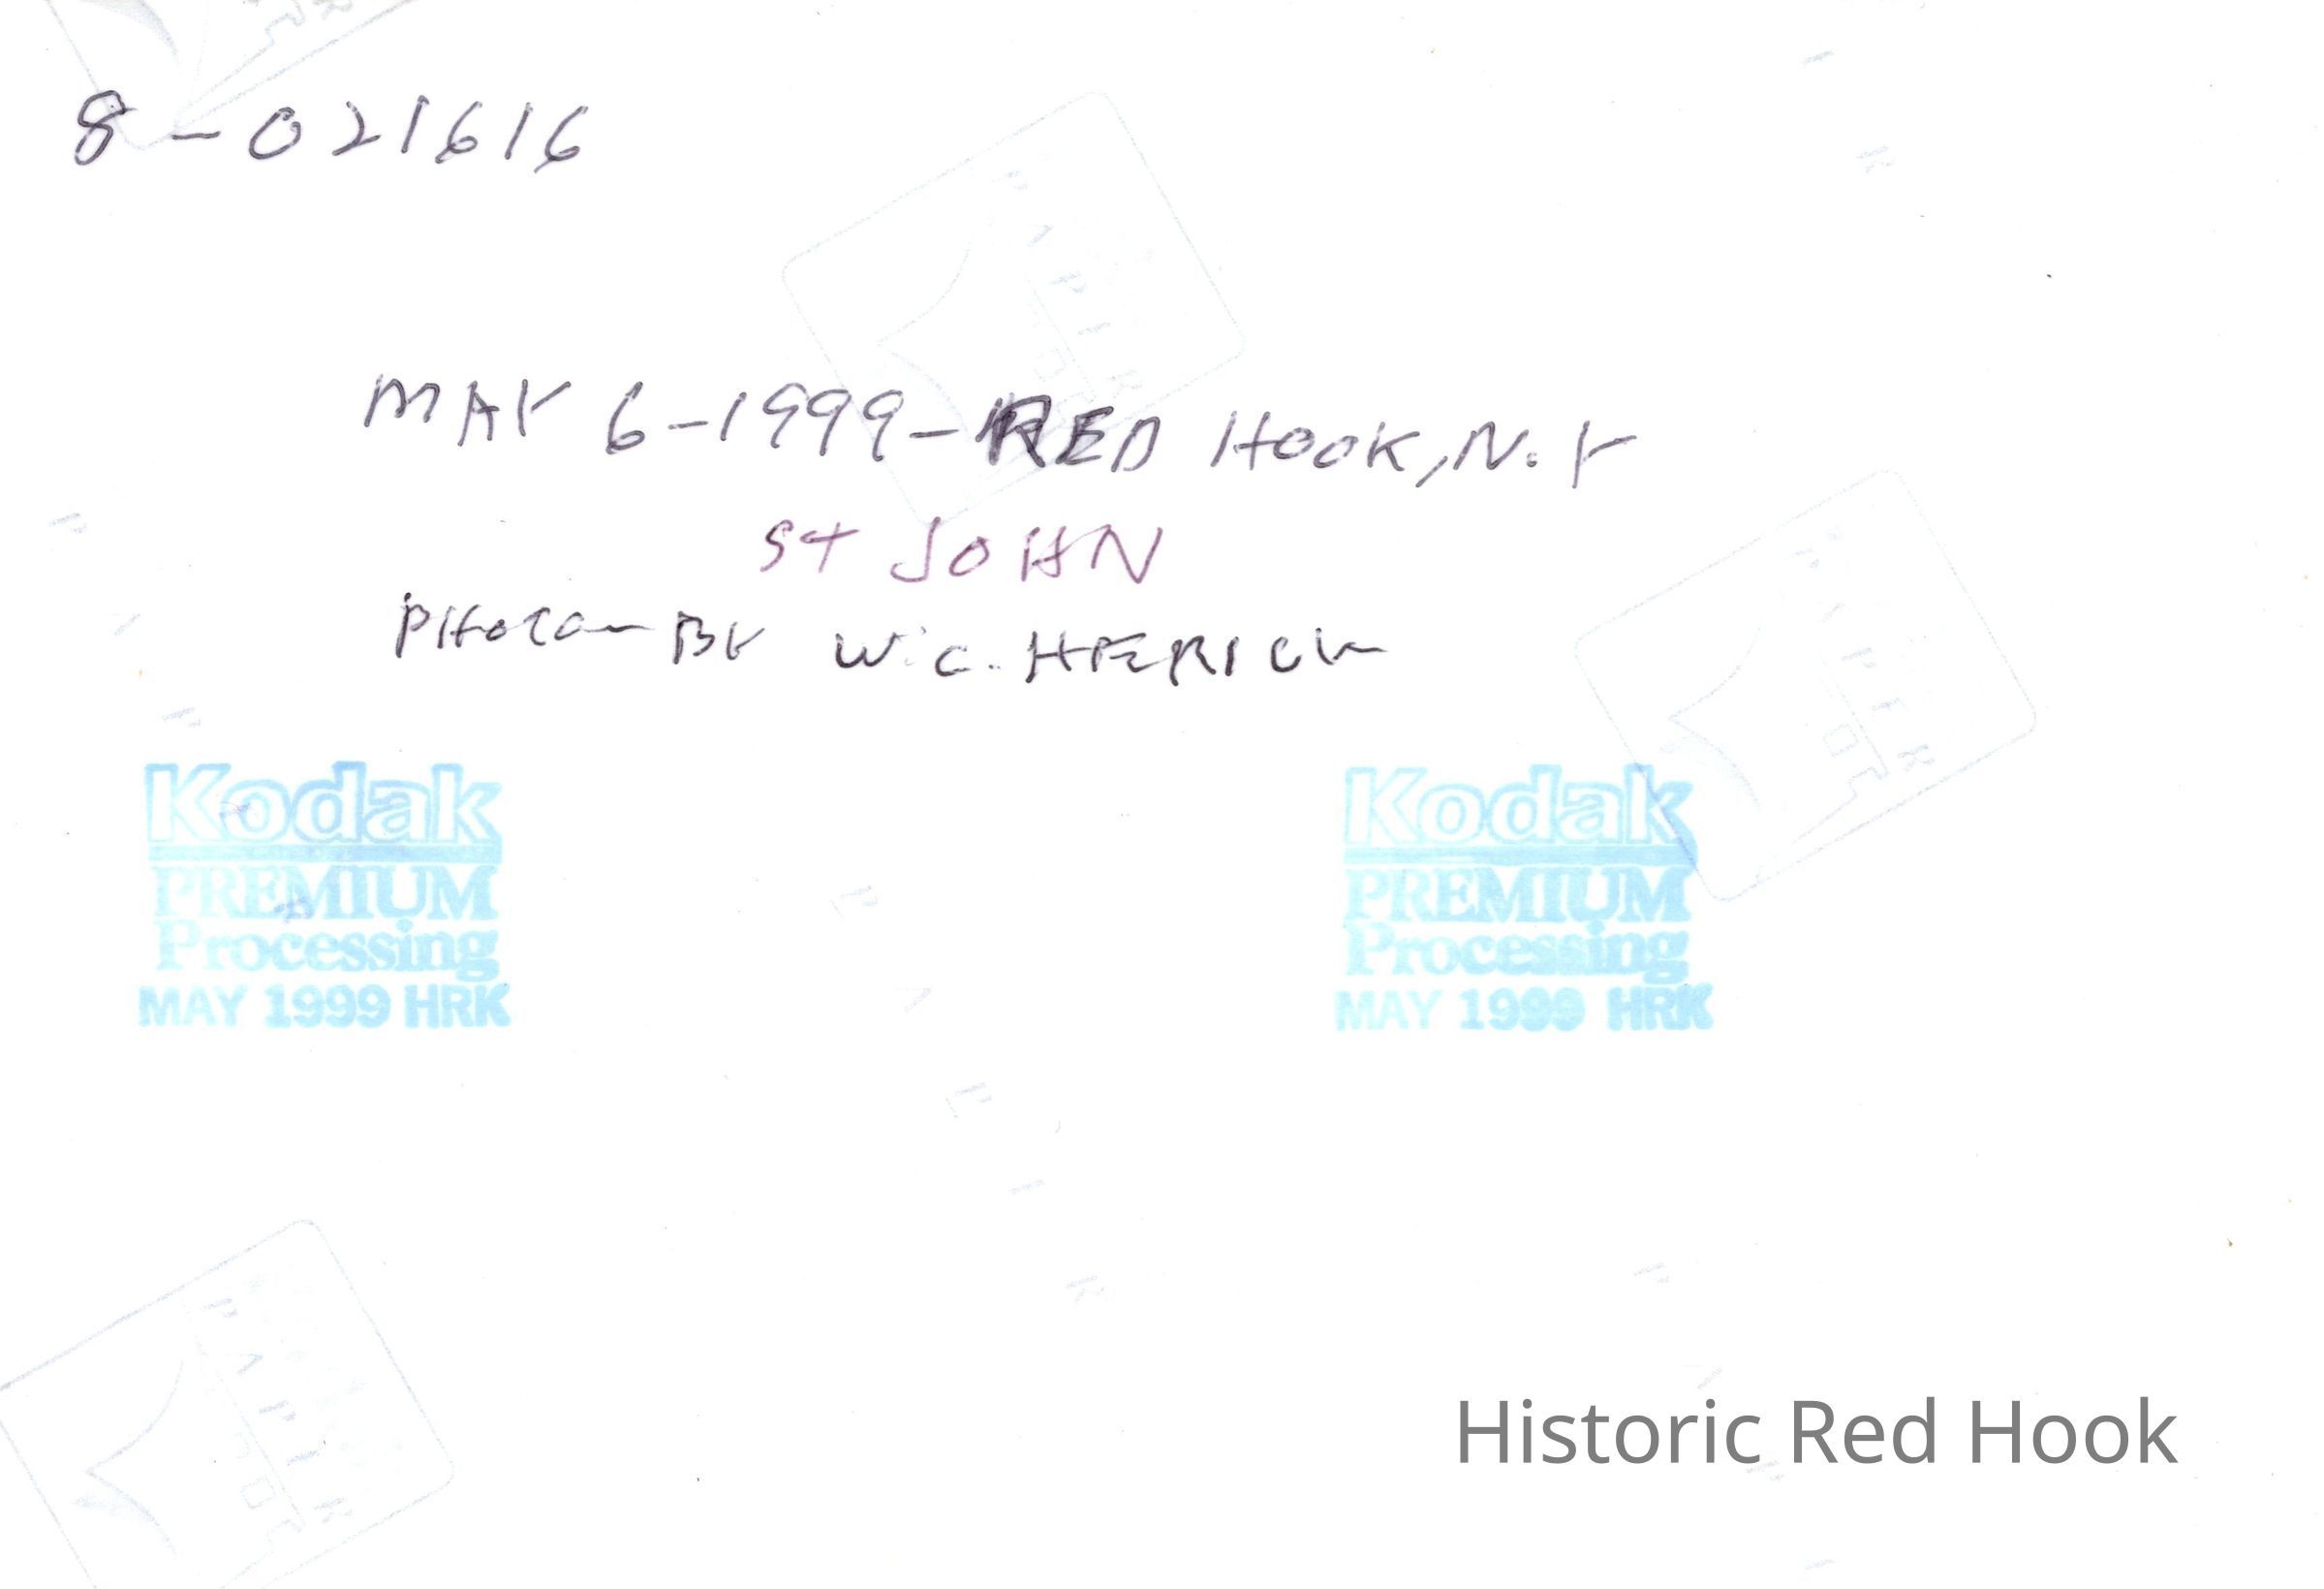 8-021616
MAY 6-1999-RED HOOK, N.Y
St JOHN
BY W.C. HERICK
Kodak
PREMIUM
Processing
MAY 1999 HRK
Kodak
PREMIUM
Processing
MAY 1999 HRK
Historic Red Hook